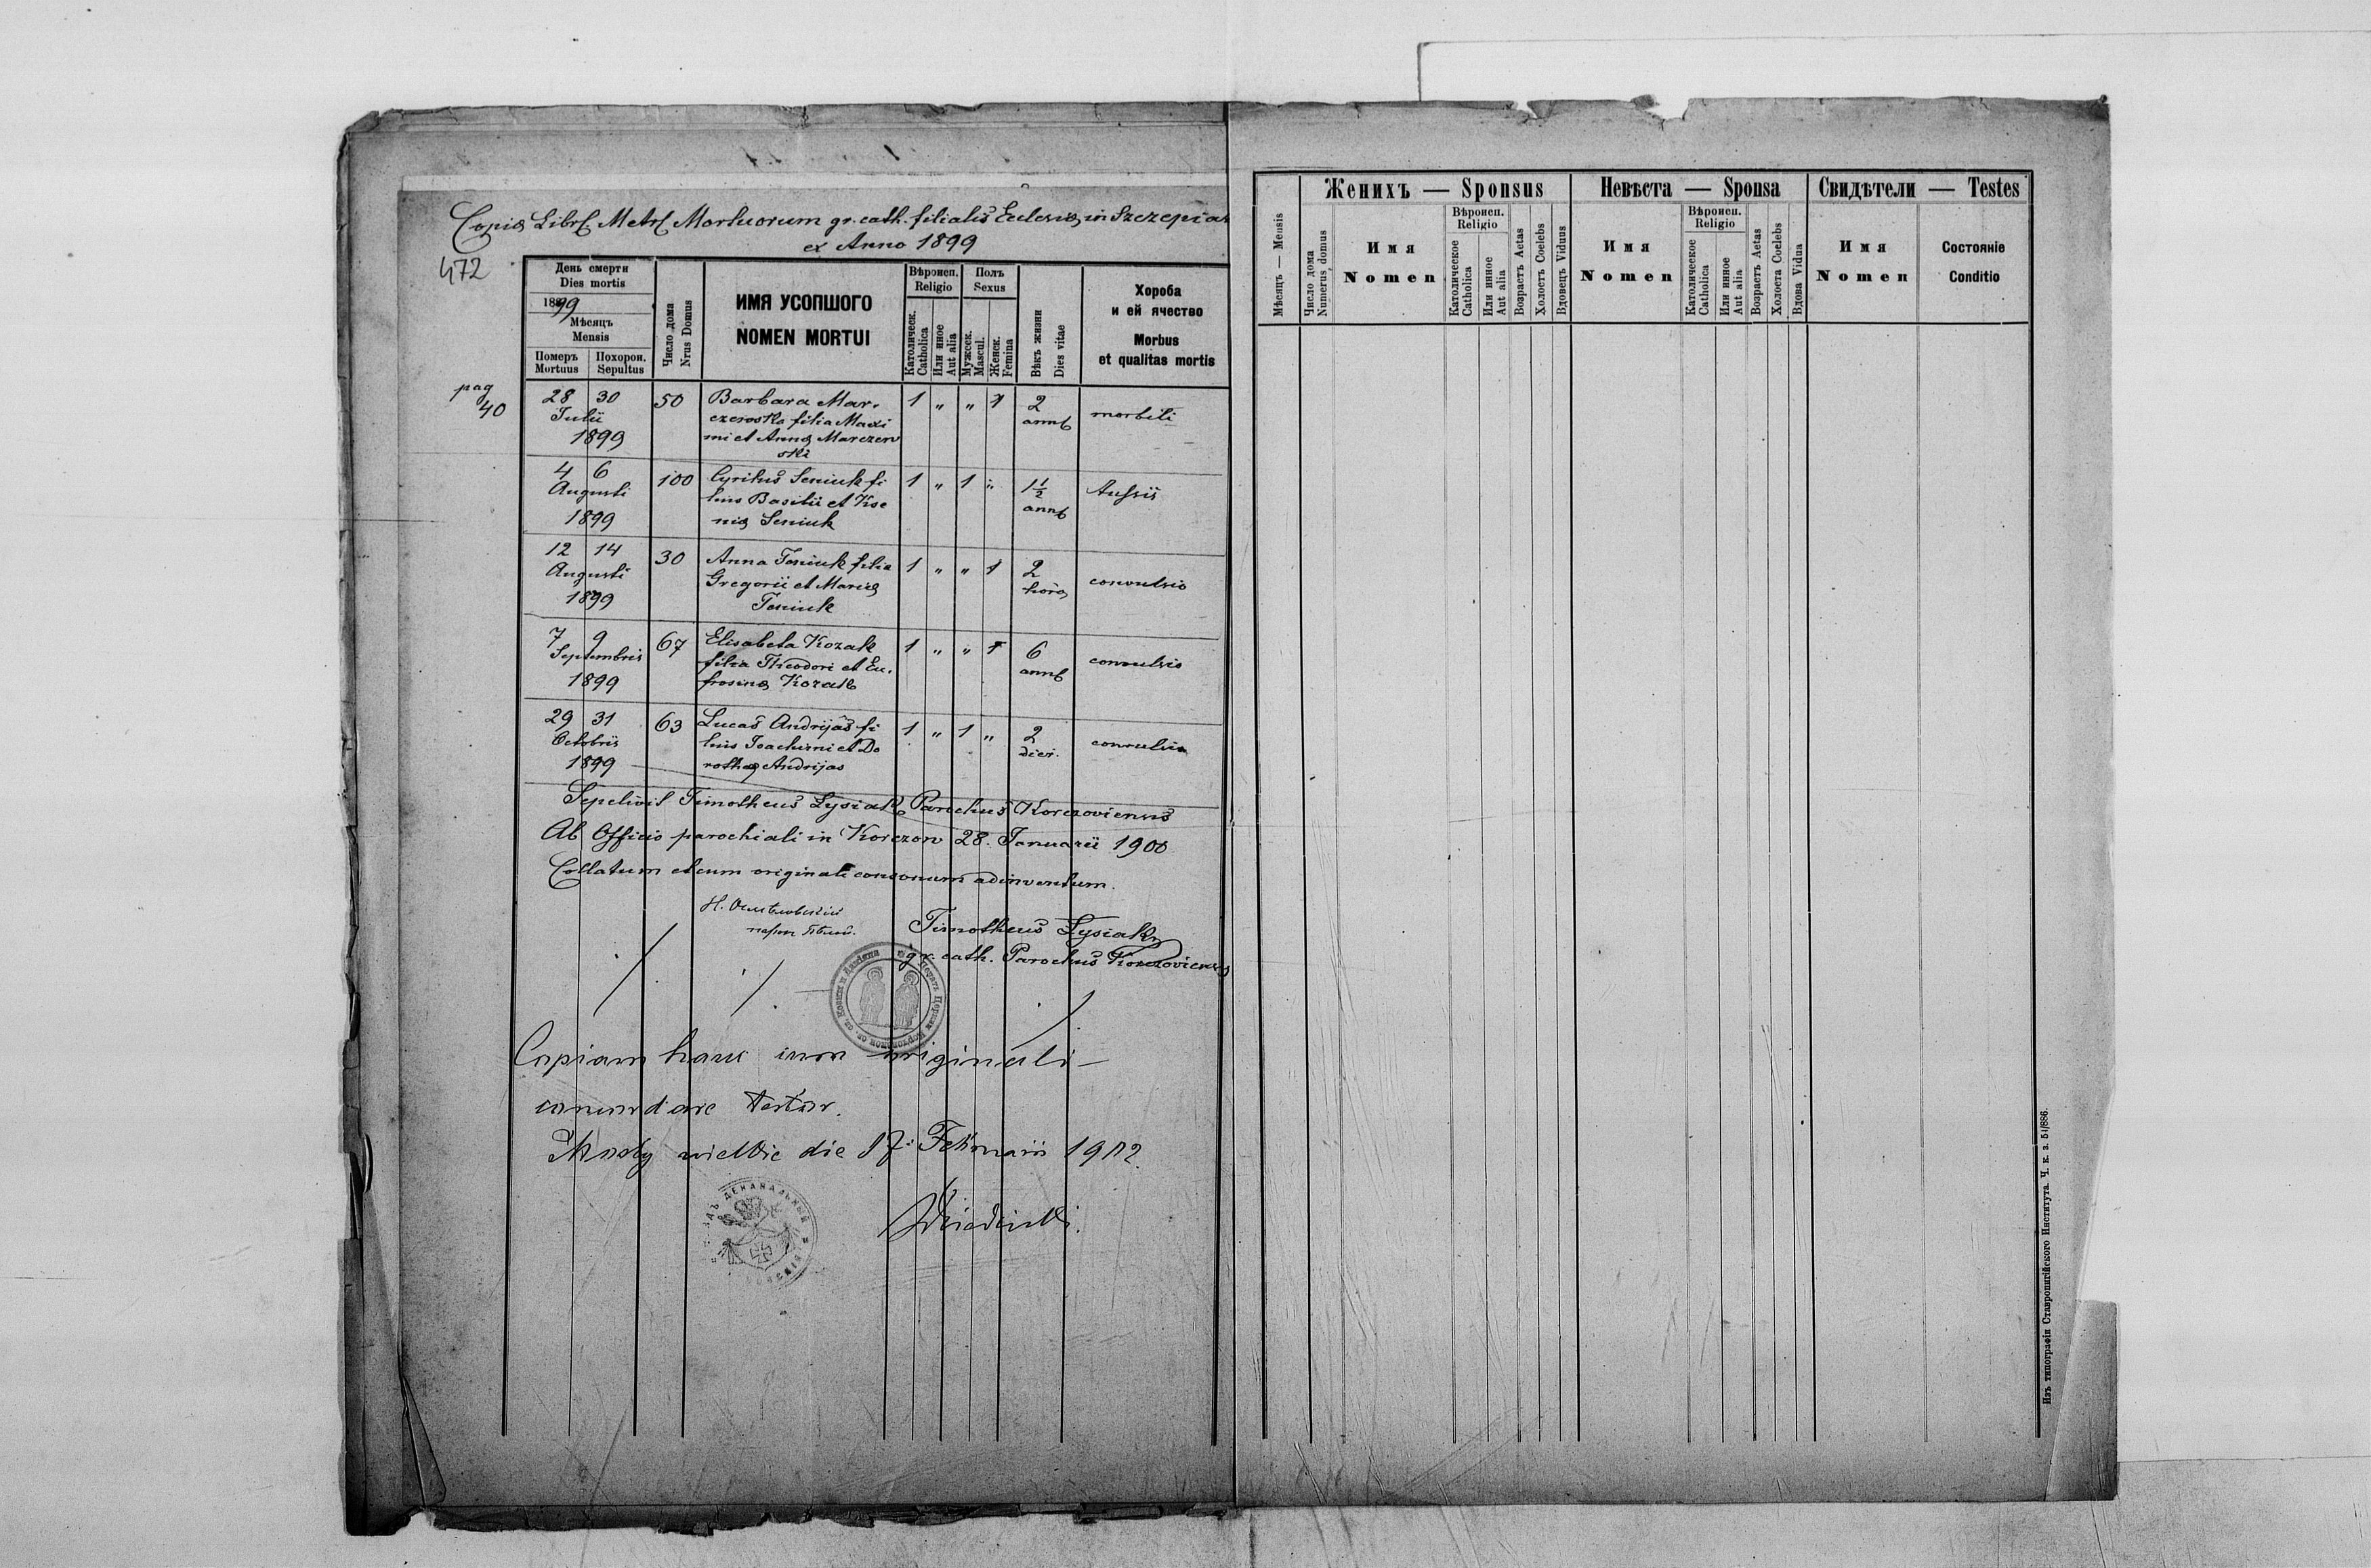 Copia Libri Metr. Mortuorum gr. cath. filialis Ecclesiæ in Szczepia
ex Anno 1899
472
День смерти
Dies mortis
1899
Мѣсяцъ
Mensis
Померъ
Mortuus
Похорон.
Sepultus
Число дома
Nrus Domus
ИМЯ УСОПШОГО
NOMEN MORTUI
Вѣроисп.
Religio
Католическ.
Catholica
Или инное
Aut alia
Полъ
Sexus
Мужеск.
Mascul.
Женск.
Femina
Вѣкъ жизни
Dies vitae
Хороба
и ей ячество
Morbus
et qualitas mortis
pag
40
28 30 50 Barbara Mar- 1 „ „ 1 2 morbili
Julii czewska filia Maxi anni
1899 mi et Annæ Marczew
ski
4 6 100 Cyrilus Seniuk fi 1 „ 1 „ 1½ tussis
Augusti lius Basilii et Kse anni
1899 niæ Seniuk
12 14 30 Anna Seniuk filia 1 „ „ 1 2 convulsio
Augusti Gregorii et Mariæ horæ
1899 Seniuk
7 9 67 Elisabeta Kozak 1 „ „ 1 6 convulsio
Septembris filia Theodori et Eu- anni
1899 frosinæ Kozak
29 31 63 Lucas Andrijas fi 1 „ 1 „ 2 convulsio
Octobris lius Joachimi et Do dies.
1899 rotheæ Andrijas
Sepelivit Timotheus Lysiak, Parochus Korczoviensis
Ab Officio parochiali in Korczow 28. Januarii 1900
Collatum et cum originali consonum adinventum.
Timotheus Lysiak
gr. cath. Parochus Korczoviensis
Copiam hanc cum originali
concordare testor.
Mosty wielkie die 17. Februarii 1902.
Женихъ — Sponsus
Невѣста — Sponsa
Свидѣтели — Testes
Мѣсяцъ — Mensis
Число дома
Numerus domus
Имя
Nomen
Вѣроисп.
Religio
Католическое
Catholica
Или инное
Aut alia
Возрастъ Aetas
Холостъ Coelebs
Вдовецъ Viduus
Имя
Nomen
Вѣроисп.
Religio
Католическое
Catholica
Или инное
Aut alia
Возрастъ Aetas
Холоста Coelebs
Вдова Vidua
Имя
Nomen
Состояніе
Conditio
Изъ типографіи Ставропигійского Института. Ч. к. з. 51/886.